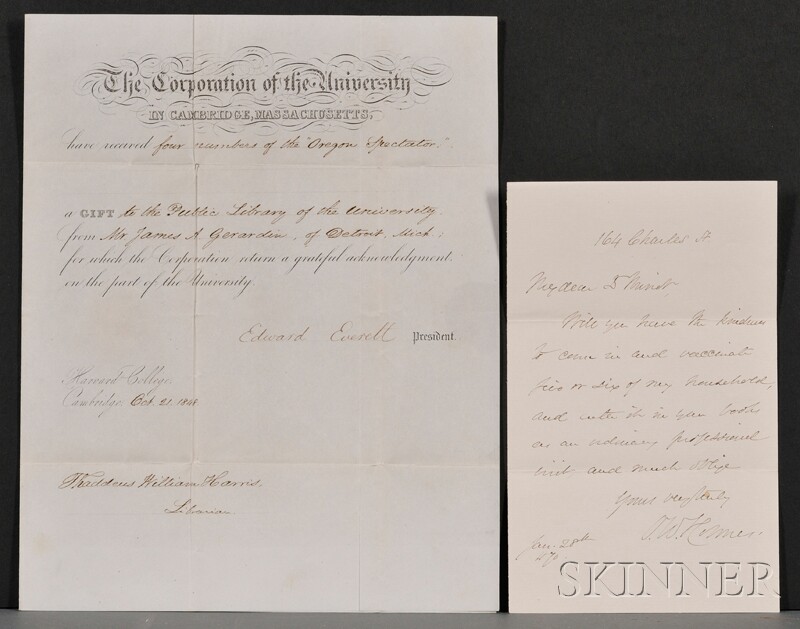 The Corporation of the University
IN CAMBRIDGE, MASSACHUSETTS,
have received four numbers of the "Oregon Spectator,"
a GIFT to the Public Library of the University,
from Mr James A. Gerardin, of Detroit, Mich;
for which the Corporation return a grateful acknowledgment,
on the part of the University.
Edward Everett President.
Harvard College,
Cambridge, Oct. 21. 1848
Thaddeus William Harris.
Librarian.
164 Charles St
My dear Dr Minot
Will you have the kindness
to come in and vaccinate
five or six of my household,
and enter it in your books
as an ordinary professional
visit and much oblige
Yours very truly
O. W. Holmes.
Jan. 28th
1870
SKINNER